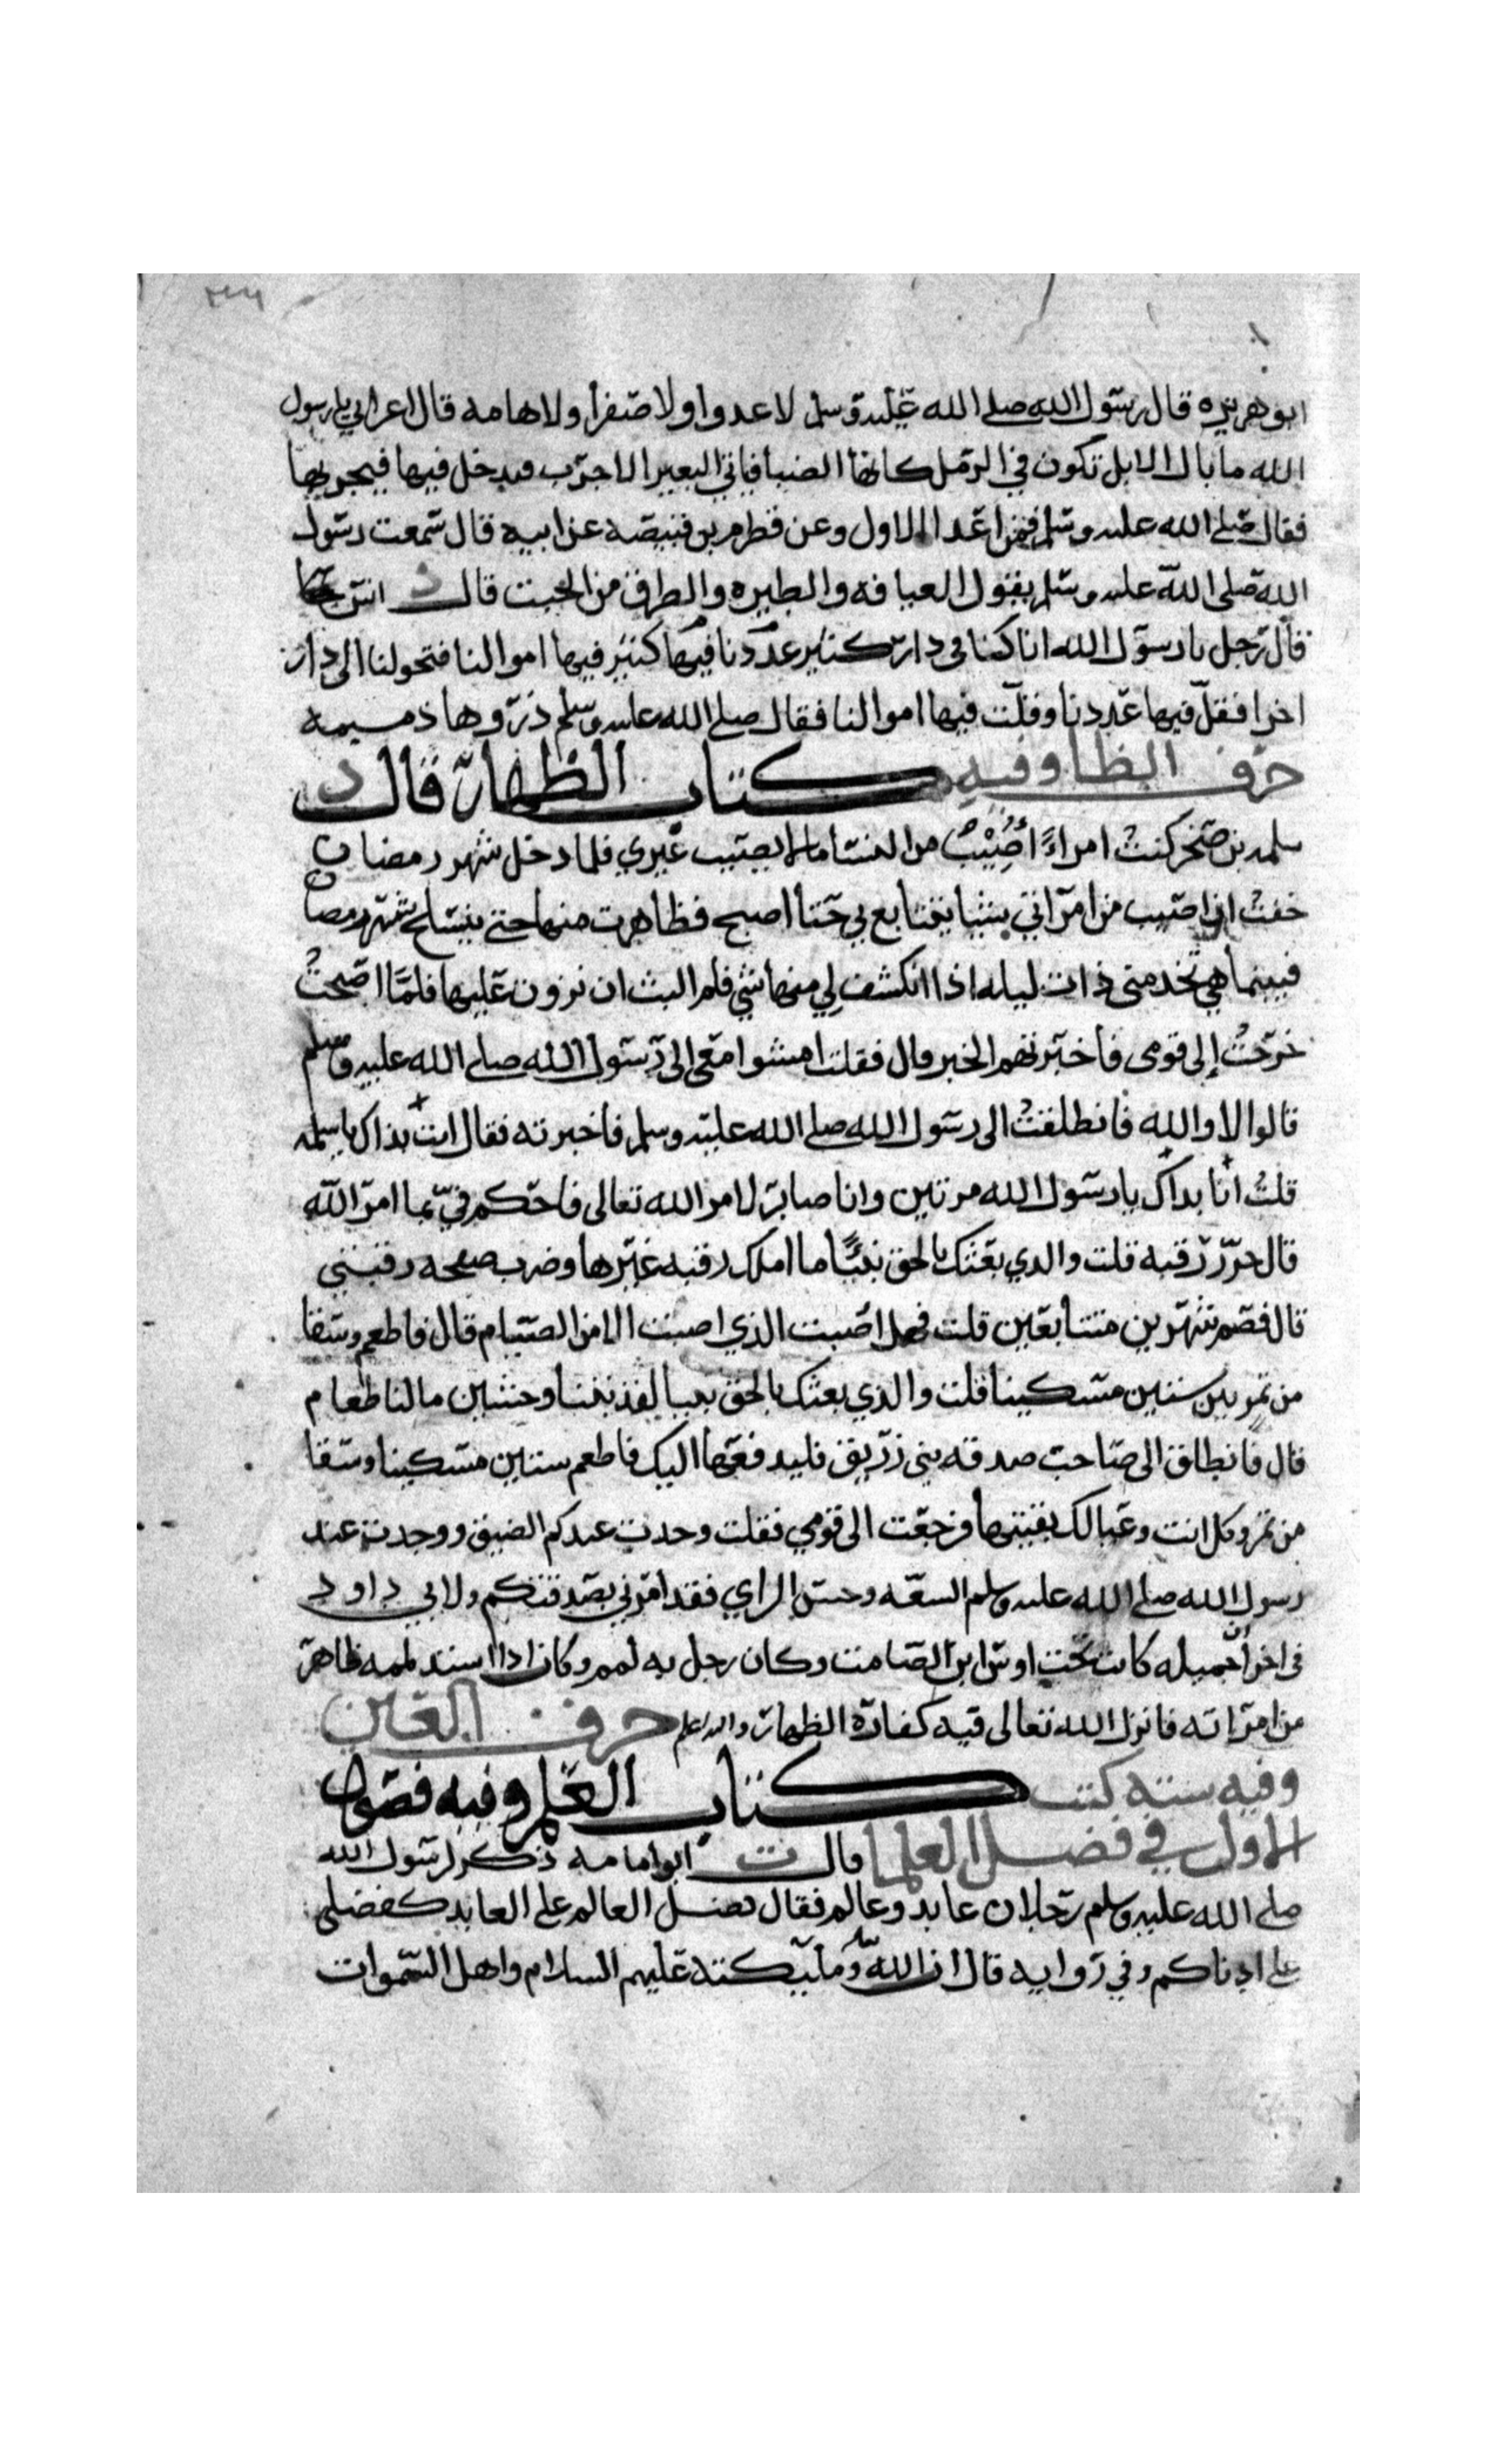 ابو هريره قال رسول الله صلى الله عليه وسلم لا عدوا ولا صفرا ولا هامه قال اعرابي يا رسول
الله ما بال الابل تكون في الرمل كانها الضبا فياتي البعير الاجرب فيدخل فيها فيجربها
فقال صلى الله عليه وسلم فمن اعدا الاول وعن قطر من بن قبيصه عن ابيه قال سمعت رسول
الله صلى الله عليه وسلم يقول العيافه والطيره والطرق من الجبت قال د انس
فقال رجل يا رسول الله انا كنا في دار كثير عددنا فيها كثير فيها اموالنا فتحولنا الى دار
اخرا فقل فيها عددنا وقلت فيها اموالنا فقال صلى الله عليه وسلم ذروها ذميمه
حرف الظا وفيه كتاب الظهار قال د
سلمه بن صخر كنت امراءً اصيب من النسا ما لا يصيب غيري فلما دخل شهر رمضان
خفت ان اصيب من امراتي شيا يتتابع بي حتا اصبح فظاهرت منها حتى ينسلخ شهر رمضان
فبينما هي تخدمني ذات ليله اذا انكشف لي منها شي فلم البث ان نزوت عليها فلما اصبحت
خرجت إلى قومي فاخبرتهم الخبر قال فقلت امشوا معي الى رسول الله صلى الله عليه وسلم
قالوا لا والله فانطلقت الى رسول الله صلى الله عليه وسلم فاخبرته فقال انت بذاك يا سلمه
قلت انا بذاك يا رسول الله مرتين وانا صابر لامر الله تعالى فاحكم في بما امر الله
قال حرر رقبه قلت والذي بعثك بالحق نبيًا ما املك رقبه غيرها وضرب صفحه رقبتي
قال فصم شهرين متتابعين قلت فهل اصبت الذي اصبت الا من الصيام قال فاطعم وسقا
من تمر بين ستين مسكينا قلت والذي بعثك بالحق نبيا لقد بتنا وحشين ما لنا طعام
قال فانطلق الى صاحب صدقه بني زريق فليدفعها اليك فاطعم ستين مسكينا وسقا
من تمر وكل انت وعيالك بقيتها فرجعت الى قومي فقلت وجدت عندكم الضيق ووجدت عند
رسول الله صلى الله عليه وسلم السعه وحسن الراي فقد امرني بصدقتكم ولابي داود
في اخرا أن جميله كانت تحت اوس ابن الصامت وكان رجل به لمم وكان اذا اشتد لممه ظاهر
من امراته فانزل الله تعالى فيه كفارة الظهار والله اعلم حرف العين
وفيه ستة كتب كتاب العلم وفيه فصول
الاول في فضل العلما قال ت ابو امامه ذكر لرسول الله
صلى الله عليه وسلم رجلان عابد وعالم فقال فضل العالم على العابد كفضلي
على ادناكم وفي روايه قال ان الله وملائكته عليهم السلام واهل السموات